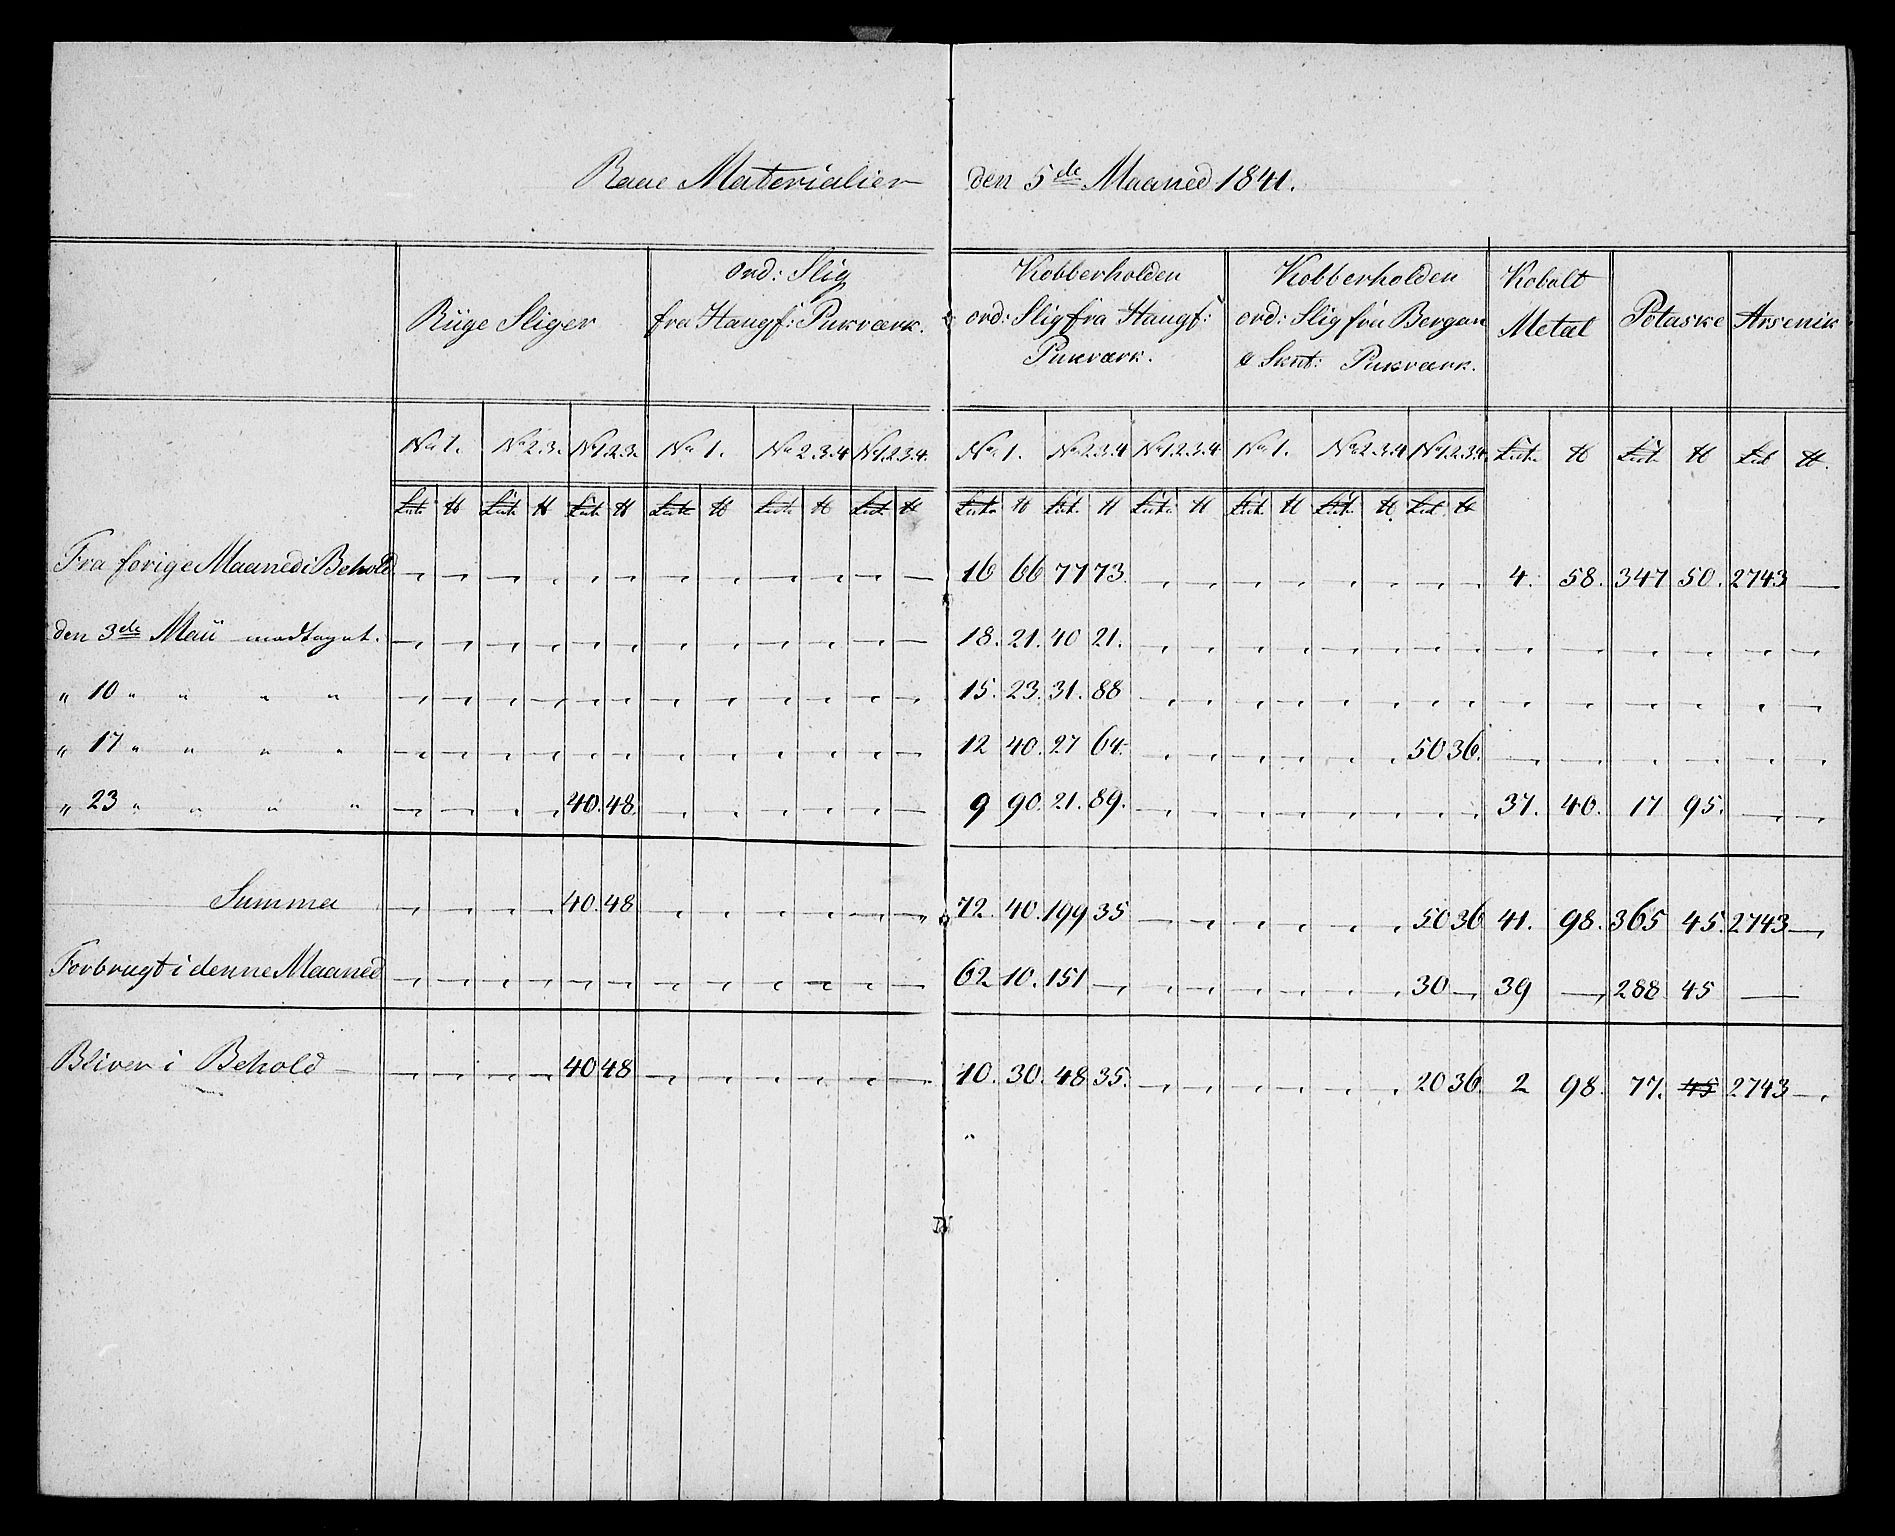 Raae Materialier den 5de Maaned 1841.
Rüge Sliger | ord: Slig fra Haugf: Pukværk. | Kobberholden ord: Slig fra Haugf: Pukværk. | Kobberholden ord: Slig fra Bergan & Skut: Pukværk. | Kobolt Metal | Potaske | Arsenik
No 1. | No 2.3. | No 1.2.3. | No 1. | No 2.3.4 | No 1.2.3.4. | No 1. | No 2.3.4 | No 1.2.3.4 | No 1. | No 2.3.4 | No 1.2.3.4
Fra forige Maaned i Behold 16 66 77 73. 4. 58. 347 50. 2743 —
den 3de Maii modtaget. 18. 21. 40 21.
" 10 " " " " 15. 23. 31. 88
" 17 " " " " 12 40. 27 64. 50 36.
" 23 " " " " 40. 48. 9 90. 21. 89. 37. 40. 17 95.
Summa 40. 48 72. 40. 199 35 50 36 41. 98. 365 45 2743 —
Forbrugt i denne Maaned 62 10. 151 — 30 — 39 — 288 45 —
Bliver i Behold 40 48 10. 30. 48 35. 20 36. 2 98. 77. 45 2743 —